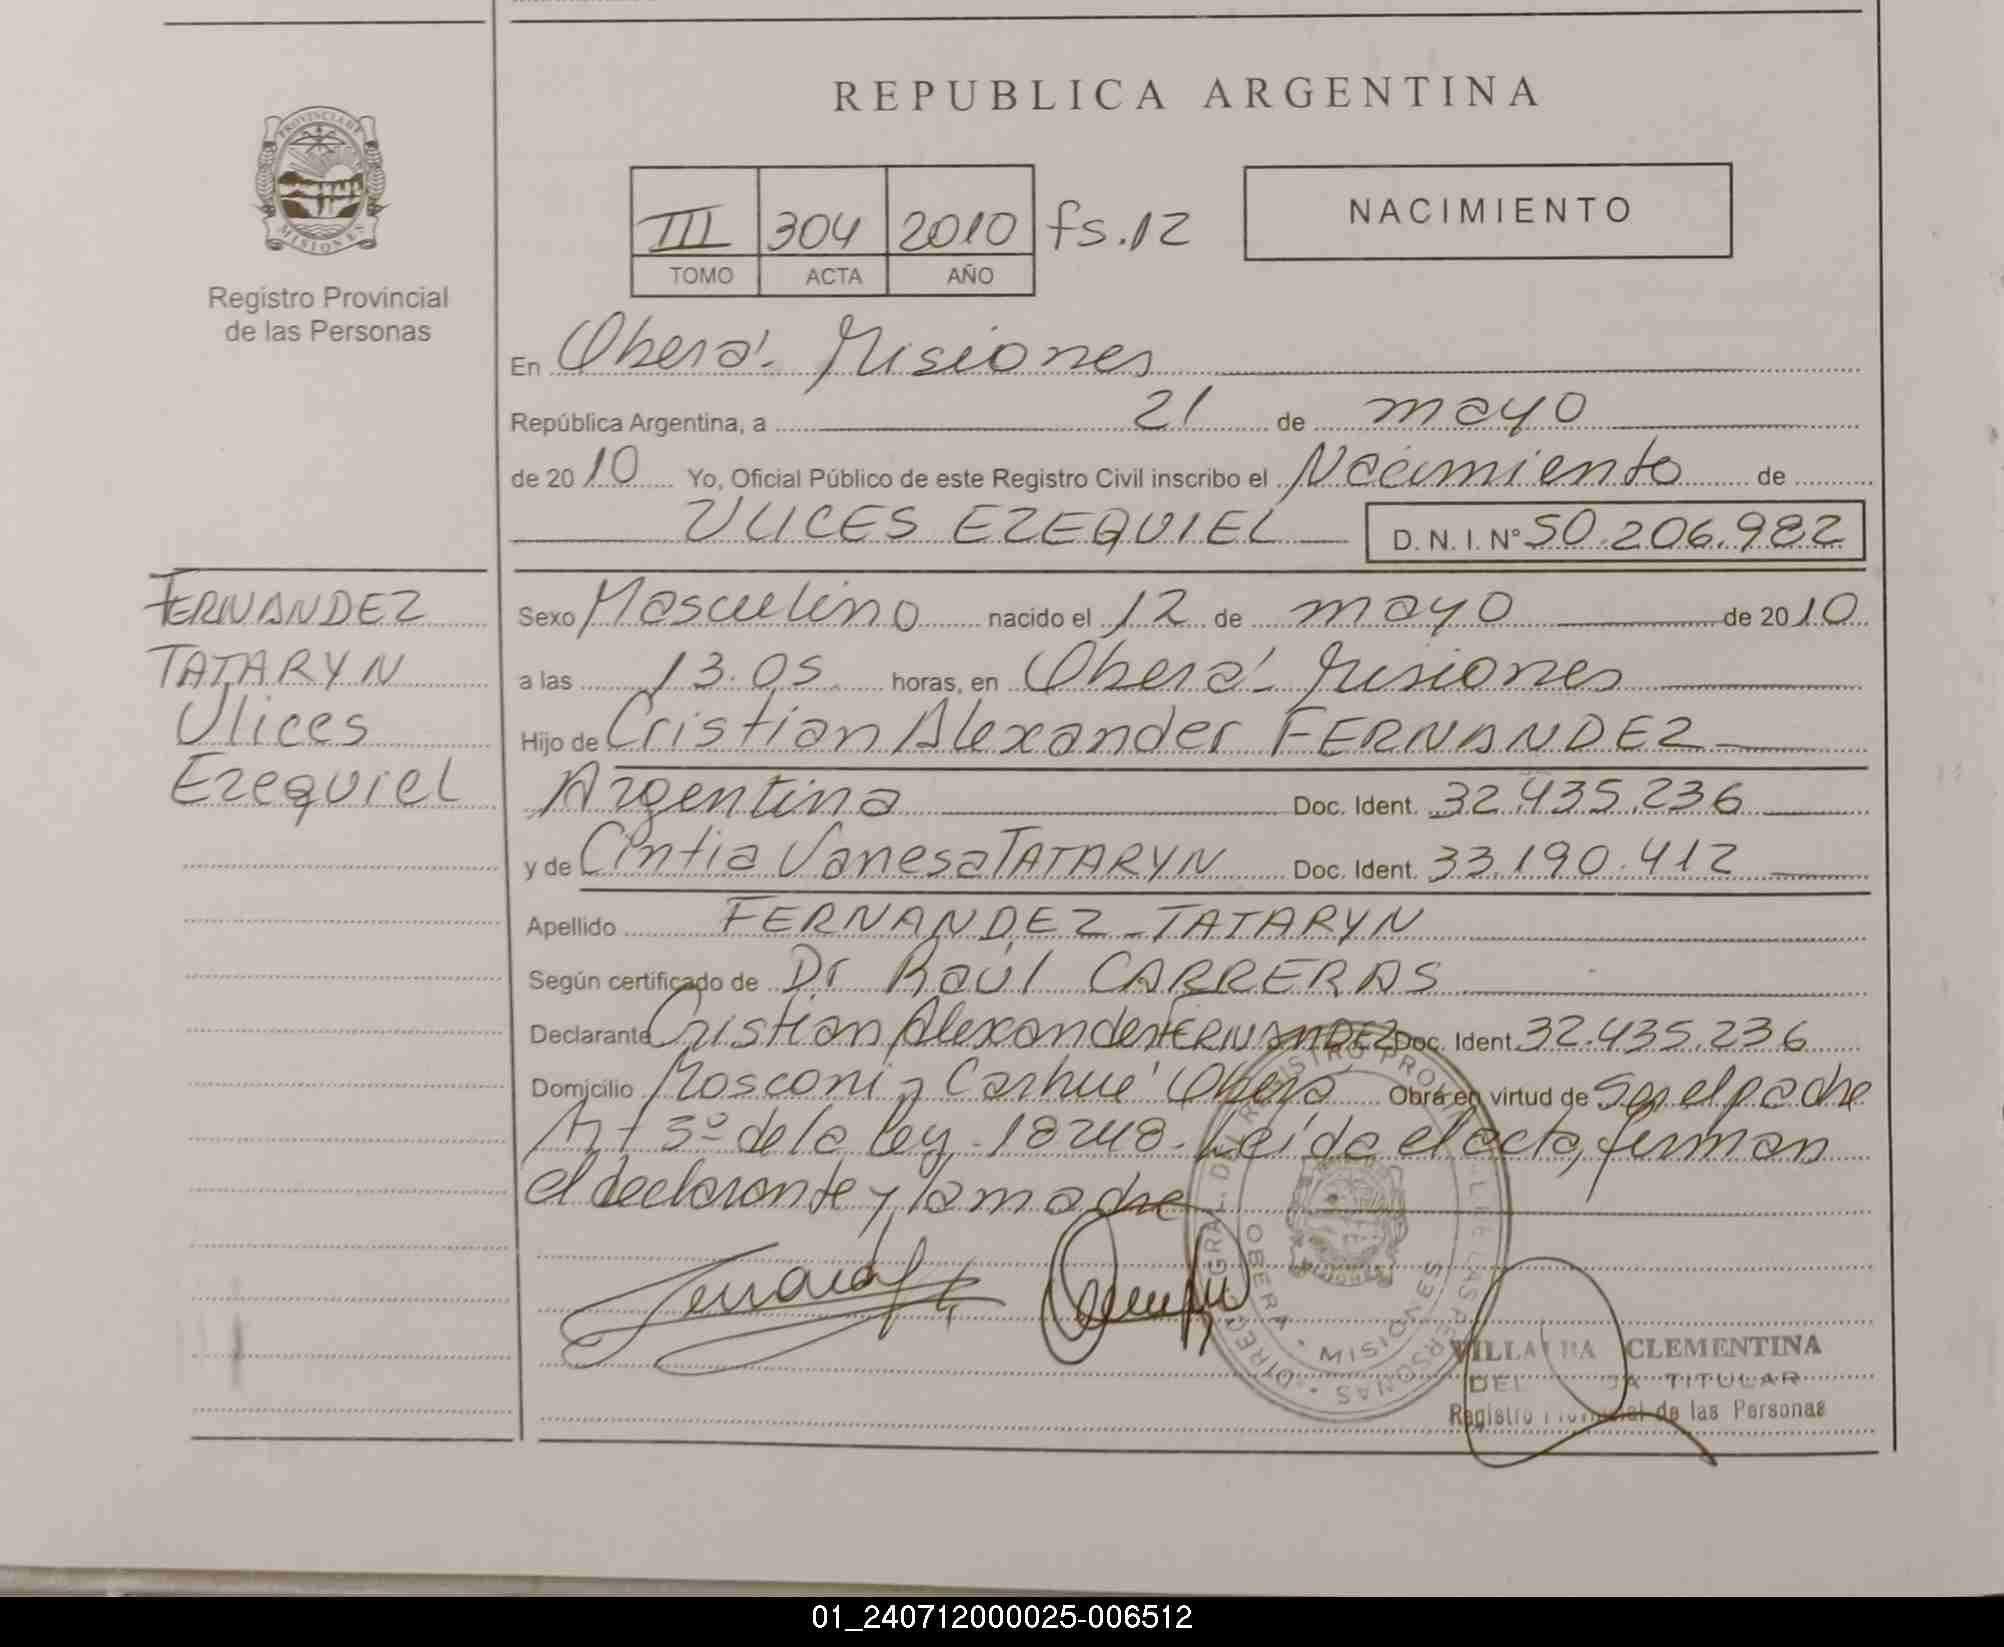 REPUBLICA ARGENTINA
PROVINCIA DE
MISIONES
Registro Provincial
de las Personas
III 304 2010 fs.12
TOMO ACTA AÑO
NACIMIENTO
En Oberá - Misiones
República Argentina, a 21 de mayo
de 2010 Yo, Oficial Público de este Registro Civil inscribo el Nacimiento de
ULICES EZEQUIEL D. N. I. N° 50.206.982
FERNANDEZ
TATARYN
Ulices
Ezequiel
Sexo Masculino nacido el 12 de mayo de 2010
a las 13.05 horas, en Oberá - Misiones
Hijo de Cristian Alexander FERNANDEZ
Argentina Doc. Ident. 32.435.236
y de Cintia Vanesa TATARYN Doc. Ident. 33.190.412
Apellido FERNANDEZ - TATARYN
Según certificado de Dr Raúl CARRERAS
Declarante Cristian Alexander FERNANDEZ Doc. Ident. 32.435.236
Domicilio Mosconi y Carhué Oberá Obra en virtud de ser el padre
Art 3º de la ley 18248. Leída el acta, firman
el declarante y la madre
OBERA • MISIONES
CLEMENTINA
TITULAR
Registro de las Personas
01_240712000025-006512